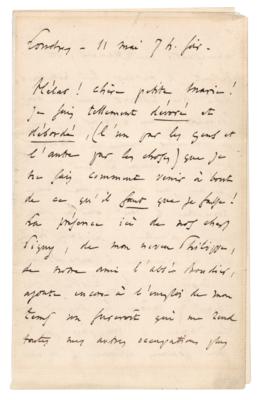 Londres - 11 mai 7 h. soir -
Hélas ! chère petite Marie !
je suis tellement dévoré et
débordé, (l'un par les gens et
l'autre par les choses) que je
ne sais comment venir à bout
de ce qu'il faut que je fasse !
La présence ici de nos chers
Pigny, de mon neveu Philippe,
de notre ami l'abbé Boudier,
ajoute encore à l'emploi de mon
temps un surcroît qui me rend
toutes mes autres occupations plus